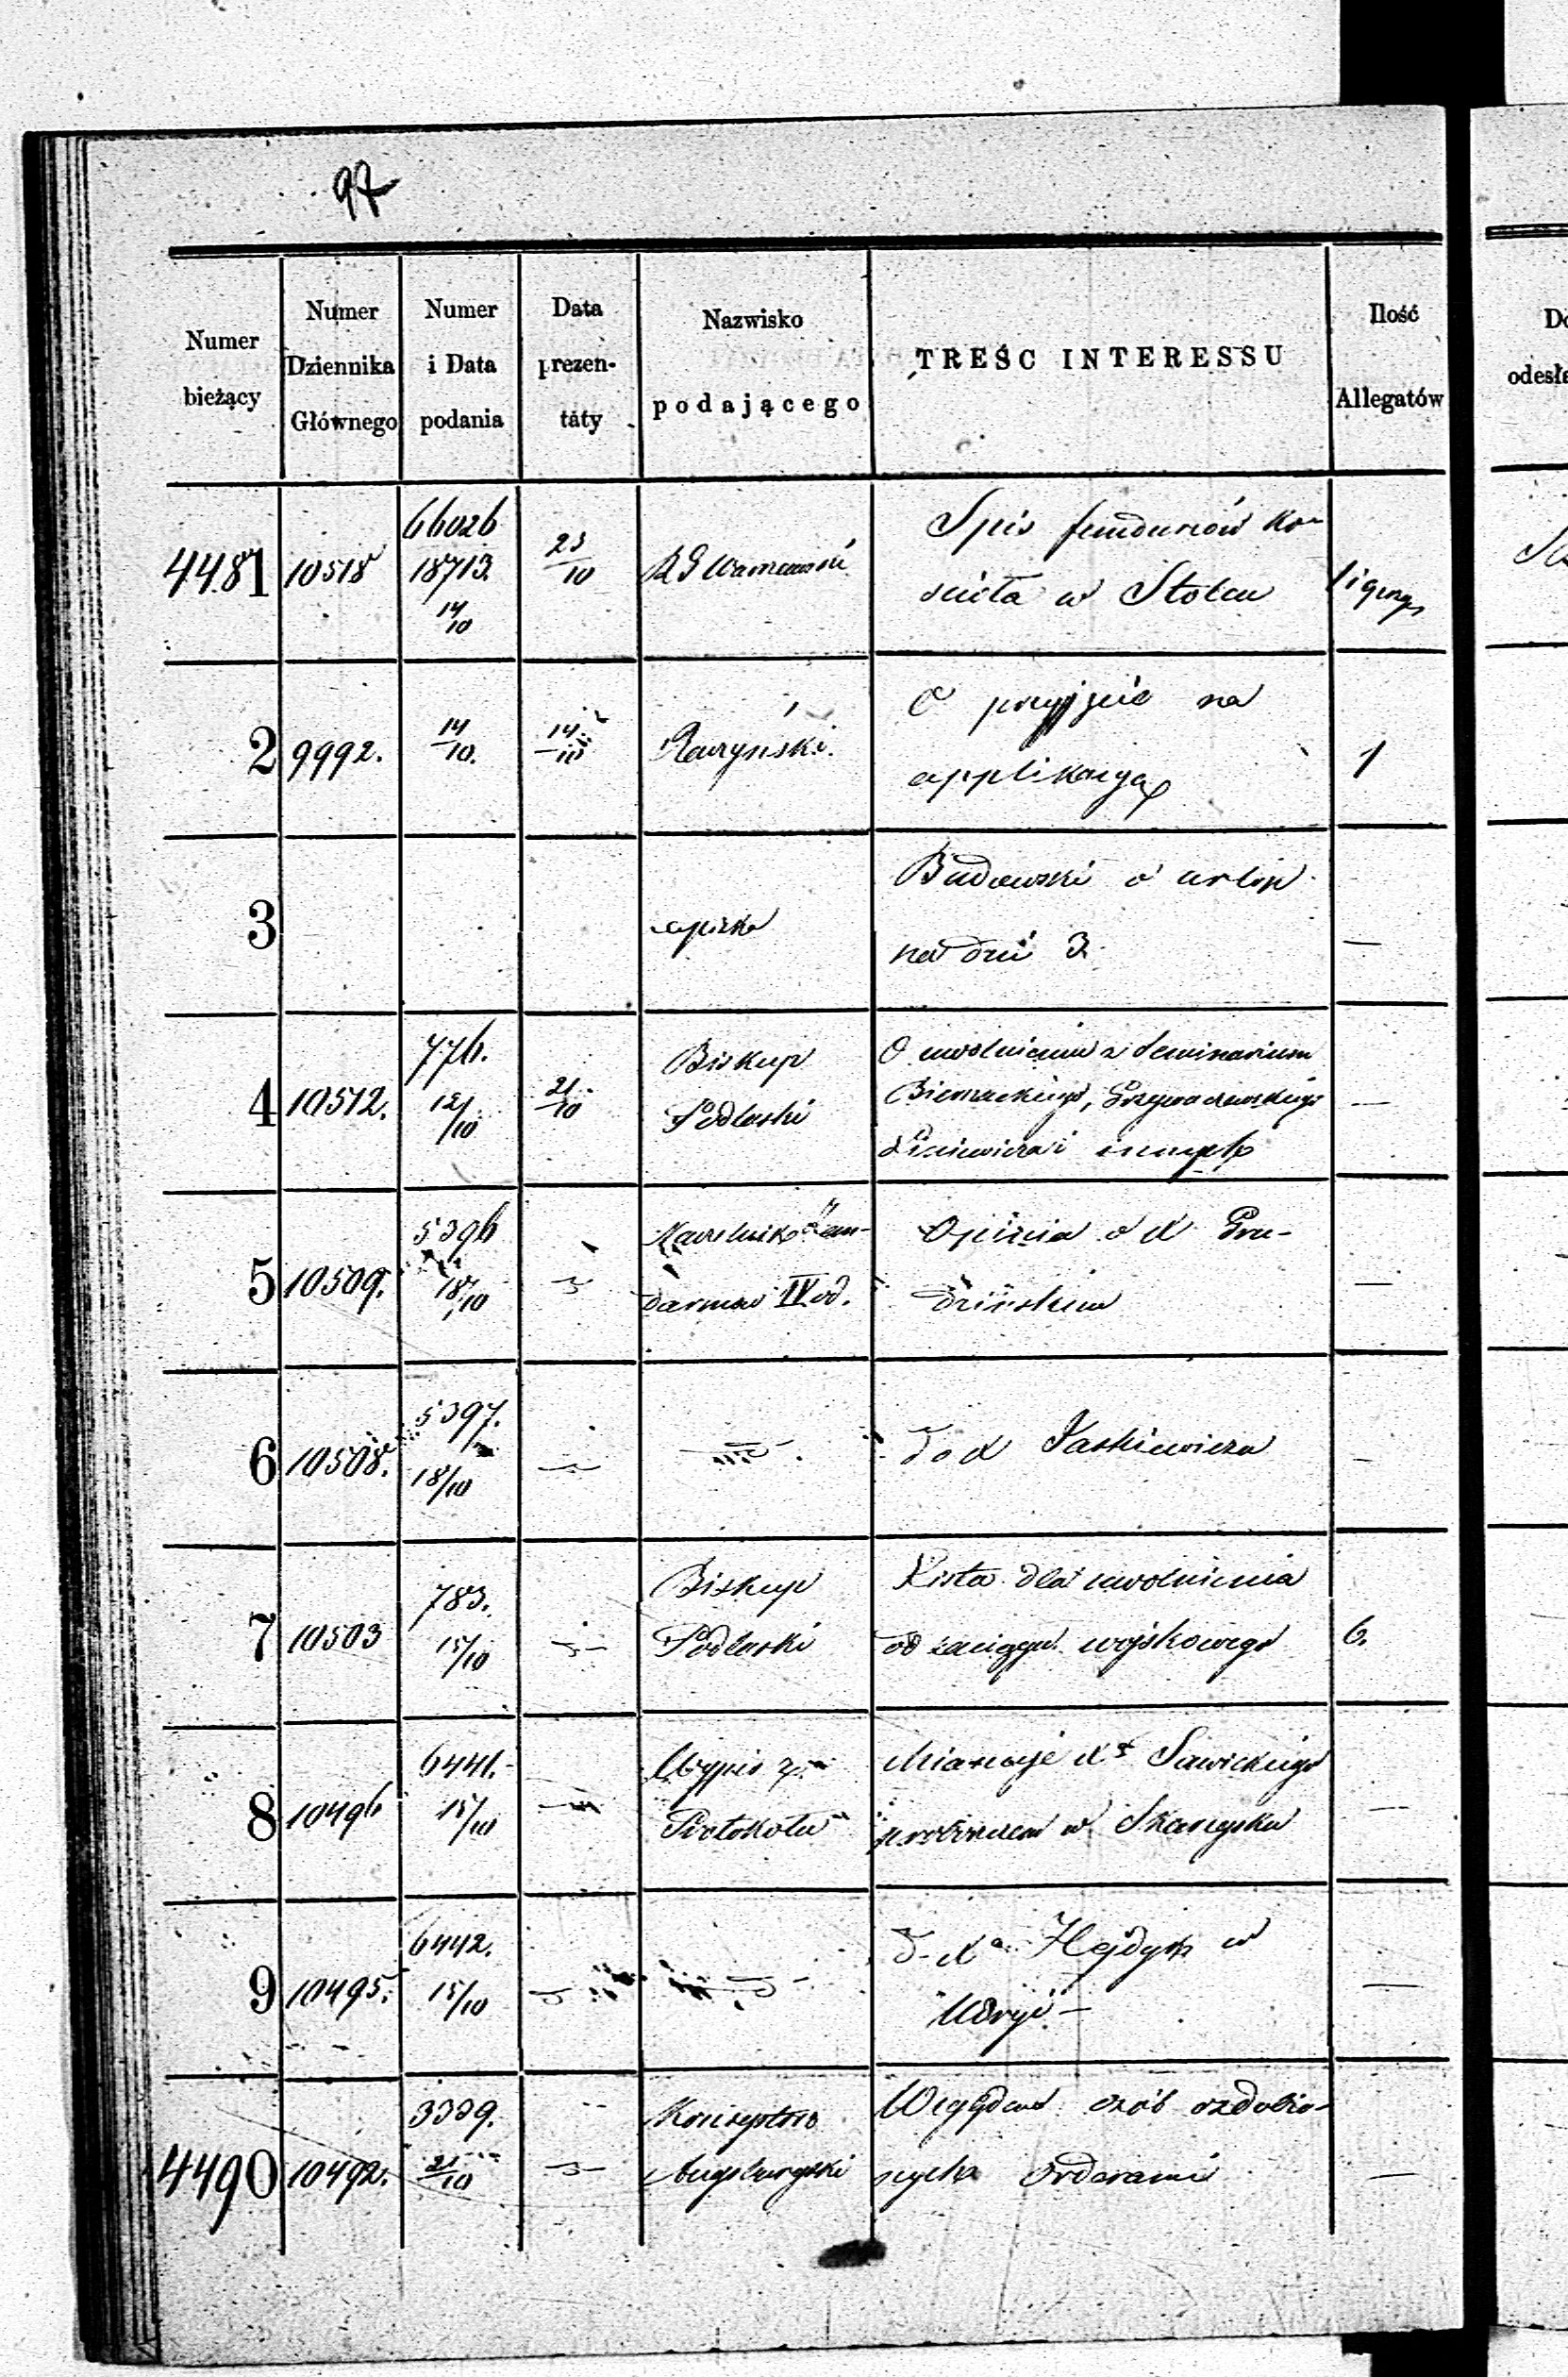 97
Numer bieżący
Numer Dziennika Głównego
Numer i Data podania
Data prezentáty
Nazwisko podającego
TREŚC INTERESSU
Ilość Allegatów
4481 10518 66026 18713. 14/10 23/10 RG Warszawski
Spis funduszów ko-
ścioła w Stolcu
2 9992. 14/10. 14/10
O przyjęcie na
applikacyą
1
3
Budowski o urlop
na dni 3.
—
4 10512. 776. 12/10 21/10
Biskup
Podlaski
O uwolnieniu z Seminarium
Biernackiego,
i innych
—
5 10509. 5396 18/10
Naczelnik Żan-
darmów IV od.
Opinia o X Gru-
dzińskim
—
6 10508. 5397. 18/10
o X Jaskiewicza
7 10503 783. 15/10
Biskup
Podlaski
Lista dla uwolnienia
od zaciągu wojskowego
6.
8 10496 6441. 15/10
Wypis z
Protokołu
Mianuje Xs Sawickiego
proboszczem w Skaryszku
—
9 10495. 6442. 15/10
Hejdyk w
—
4490 10492. 3339. 21/10
Konsystorz
Augustowski
osób ozdobio-
nych Orderami
—